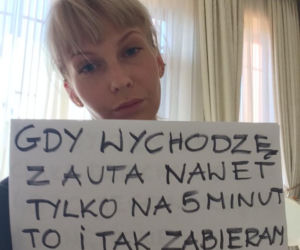 GDY WYCHODZĘ
Z AUTA NAWET
TYLKO NA 5 MINUT
TO I TAK ZABIERAM